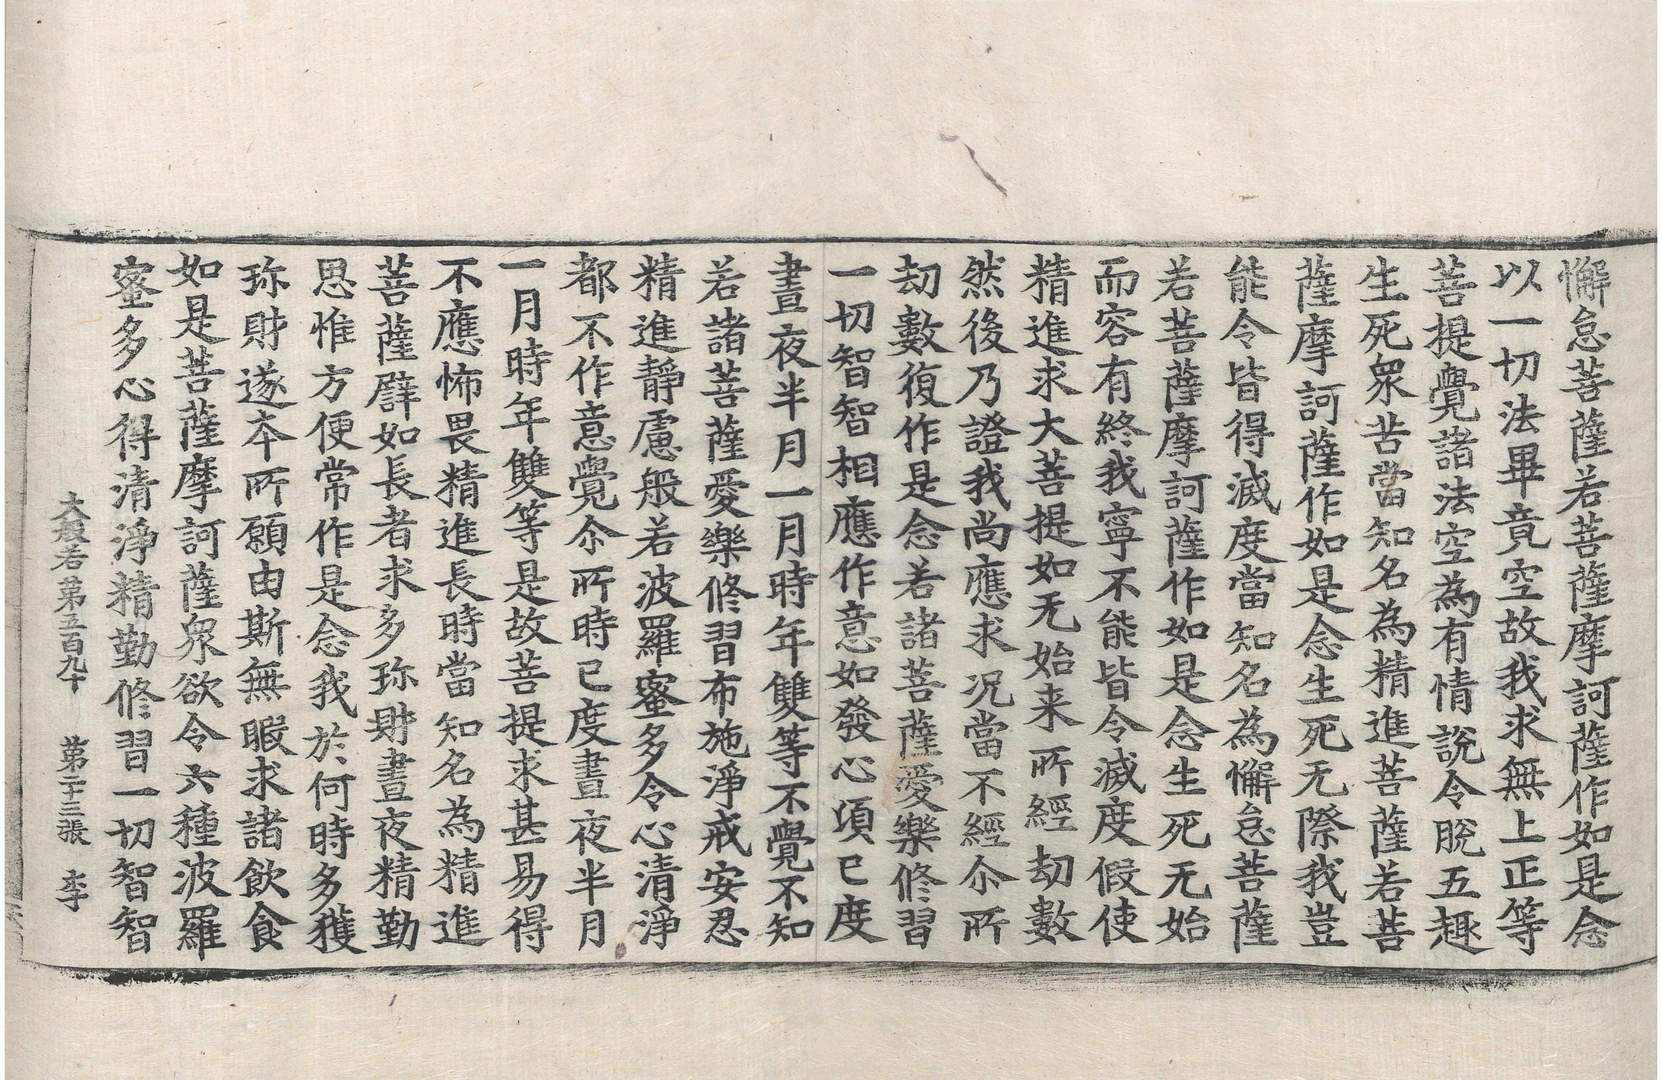 懈怠菩薩若菩薩摩訶薩作如是念
以一切法畢竟空故我求無上正等
菩提覺諸法空為有情說令脫五趣
生死衆苦當知名為精進菩薩若菩
薩摩訶薩作如是念生死无際我豈
能令皆得滅度當知名為懈怠菩薩
若菩薩摩訶薩作如是念生死无始
而容有終我寧不能皆令滅度假使
精進求大菩提如无始来所經劫數
然後乃證我尚應求况當不經尒所
劫數復作是念若諸菩薩愛樂修習
一切智智相應作意如發心頃已度
晝夜半月一月時年雙等不覺不知
若諸菩薩愛樂修習布施淨戒安忍
精進靜慮般若波羅蜜多令心清淨
都不作意覺尒所時已度晝夜半月
一月時年雙等是故菩提求甚易得
不應怖畏精進長時當知名為精進
菩薩譬如長者求多珎財晝夜精勤
思惟方便常作是念我於何時多獲
珎財遂夲所願由斯無暇求諸飲食
如是菩薩摩訶薩衆欲令六種波羅
蜜多心得清淨精勤修習一切智智
大般若第五百九十　第二十三張　李